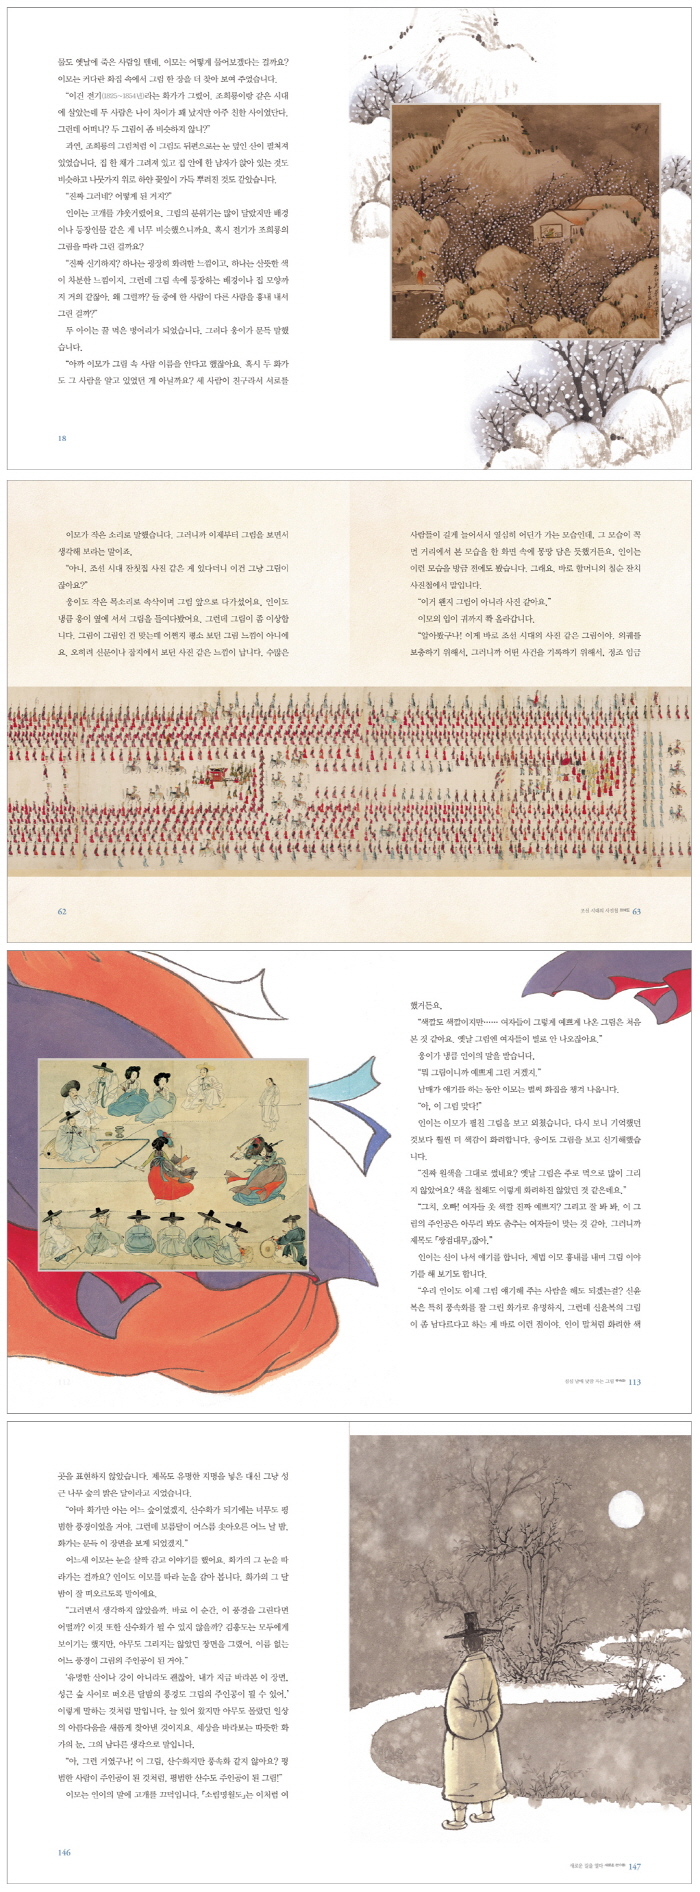 들도 옛날에 죽은 사람일 텐데, 이모는 어떻게 물어보겠다는 걸까요?
이모는 커다란 화집 속에서 그림 한 장을 더 찾아 보여 주었습니다.
“이건 전기(1825~1854년)라는 화가가 그렸어. 조희룡이랑 같은 시대
에 살았는데 두 사람은 나이 차이가 꽤 났지만 아주 친한 사이였단다.
그런데 어떠니? 두 그림이 좀 비슷하지 않니?”
과연, 조희룡의 그림처럼 이 그림도 뒤편으로는 눈 덮인 산이 펼쳐져
있었습니다. 집 한 채가 그려져 있고 집 안에 한 남자가 앉아 있는 것도
비슷하고 나뭇가지 위로 하얀 꽃잎이 가득 뿌려진 것도 같았습니다.
“진짜 그러네? 어떻게 된 거지?”
인이는 고개를 갸웃거렸어요. 그림의 분위기는 많이 달랐지만 배경
이나 등장인물 같은 게 너무 비슷했으니까요. 혹시 전기가 조희룡의
그림을 따라 그린 걸까요?
“진짜 신기하지? 하나는 굉장히 화려한 느낌이고, 하나는 산뜻한 색
이 차분한 느낌이지. 그런데 그림 속에 등장하는 배경이나 집 모양까
지 거의 같잖아. 왜 그럴까? 둘 중에 한 사람이 다른 사람을 흉내 내서
그린 걸까?”
두 아이는 꿀 먹은 벙어리가 되었습니다. 그러다 웅이가 문득 말했
습니다.
“아까 이모가 그림 속 사람 이름을 안다고 했잖아요. 혹시 두 화가
도 그 사람을 알고 있었던 게 아닐까요? 세 사람이 친구라서 서로를
18
이모가 작은 소리로 말했습니다. 그러니까 이제부터 그림을 보면서
생각해 보라는 말이죠.
“아니, 조선 시대 잔칫집 사진 같은 게 있다더니 이건 그냥 그림이
잖아요?”
웅이도 작은 목소리로 속삭이며 그림 앞으로 다가섰어요. 인이도
냉큼 웅이 옆에 서서 그림을 들여다봤어요. 그런데 그림이 좀 이상합
니다. 그림이 그림인 건 맞는데 어쩐지 평소 보던 그림 느낌이 아니에
요. 오히려 신문이나 잡지에서 보던 사진 같은 느낌이 납니다. 수많은
사람들이 길게 늘어서서 열심히 어딘가 가는 모습인데, 그 모습이 꼭
먼 거리에서 본 모습을 한 화면 속에 몽땅 담은 듯했거든요. 인이는
이런 모습을 방금 전에도 봤습니다. 그래요, 바로 할머니의 칠순 잔치
사진첩에서 말입니다.
“이거 왠지 그림이 아니라 사진 같아요.”
이모의 입이 귀까지 쫙 올라갑니다.
“알아봤구나! 이게 바로 조선 시대의 사진 같은 그림이야. 의궤를
보충하기 위해서, 그러니까 어떤 사건을 기록하기 위해서, 정조 임금
62
조선 시대의 사진첩
63
했거든요.
“색깔도 색깔이지만…… 여자들이 그렇게 예쁘게 나온 그림은 처음
본 것 같아요. 옛날 그림엔 여자들이 별로 안 나오잖아요.”
웅이가 냉큼 인이의 말을 받습니다.
“뭐 그림이니까 예쁘게 그린 거겠지.”
남매가 얘기를 하는 동안 이모는 벌써 화집을 챙겨 나옵니다.
“아, 이 그림 맞다!”
인이는 이모가 펼친 그림을 보고 외쳤습니다. 다시 보니 기억했던
것보다 훨씬 더 색감이 화려합니다. 웅이도 그림을 보고 신기해했습
니다.
“진짜 원색을 그대로 썼네요? 옛날 그림은 주로 먹으로 많이 그리
지 않았어요? 색을 칠해도 이렇게 화려하진 않았던 것 같은데요.”
“그치, 오빠! 여자들 옷 색깔 진짜 예쁘지? 그리고 잘 봐 봐. 이 그
림의 주인공은 아무리 봐도 춤추는 여자들이 맞는 것 같아. 그러니까
제목도 『쌍검대무』잖아.”
인이는 신이 나서 얘기를 합니다. 제법 이모 흉내를 내며 그림 이야
기를 해 보기도 합니다.
“우리 인이도 이제 그림 얘기해 주는 사람을 해도 되겠는걸? 신윤
복은 특히 풍속화를 잘 그린 화가로 유명하지. 그런데 신윤복의 그림
이 좀 남다르다고 하는 게 바로 이런 점이야. 인이 말처럼 화려한 색
113
곳을 표현하지 않았습니다. 제목도 유명한 지명을 넣은 대신 그냥 성
근 나무 숲의 밝은 달이라고 지었습니다.
“아마 화가만 아는 어느 숲이었겠지. 산수화가 되기에는 너무도 평
범한 풍경이었을 거야. 그런데 보름달이 어스름 솟아오른 어느 날 밤,
화가는 문득 이 장면을 보게 되었겠지.”
어느새 이모는 눈을 살짝 감고 이야기를 했어요. 화가의 그 눈을 따
라가는 걸까요? 인이도 이모를 따라 눈을 감아 봅니다. 화가의 그 달
밤이 잘 떠오르도록 말이에요.
“그러면서 생각하지 않았을까. 바로 이 순간, 이 풍경을 그린다면
어떨까? 이것 또한 산수화가 될 수 있지 않을까? 김홍도는 모두에게
보이기는 했지만, 아무도 그리지는 않았던 장면을 그렸어. 이름 없는
어느 풍경이 그림의 주인공이 된 거야.”
‘유명한 산이나 강이 아니라도 괜찮아. 내가 지금 바라본 이 장면,
성근 숲 사이로 떠오른 달밤의 풍경도 그림의 주인공이 될 수 있어.’
이렇게 말하는 것처럼 말입니다. 늘 있어 왔지만 아무도 몰랐던 일상
의 아름다움을 새롭게 찾아낸 것이지요. 세상을 바라보는 따뜻한 화
가의 눈, 그의 남다른 생각으로 말입니다.
“아, 그런 거였구나! 이 그림, 산수화지만 풍속화 같지 않아요? 평
범한 사람이 주인공이 된 것처럼, 평범한 산수도 주인공이 된 그림!”
이모는 인이의 말에 고개를 끄덕입니다. 『소림명월도』는 이처럼 여
146
147